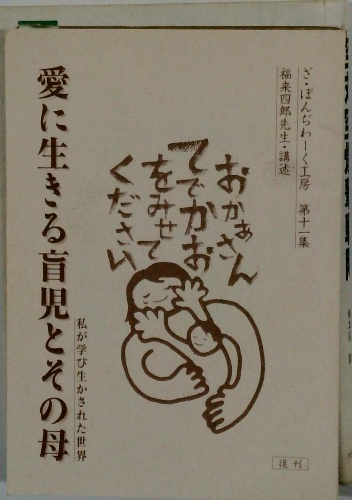 ざ・ぽんぢわーく工房　第十一集
福来四郎先生・講述
おかあさん
てでかお
をみせて
ください
愛に生きる盲児とその母
私が学び生かされた世界
復刊